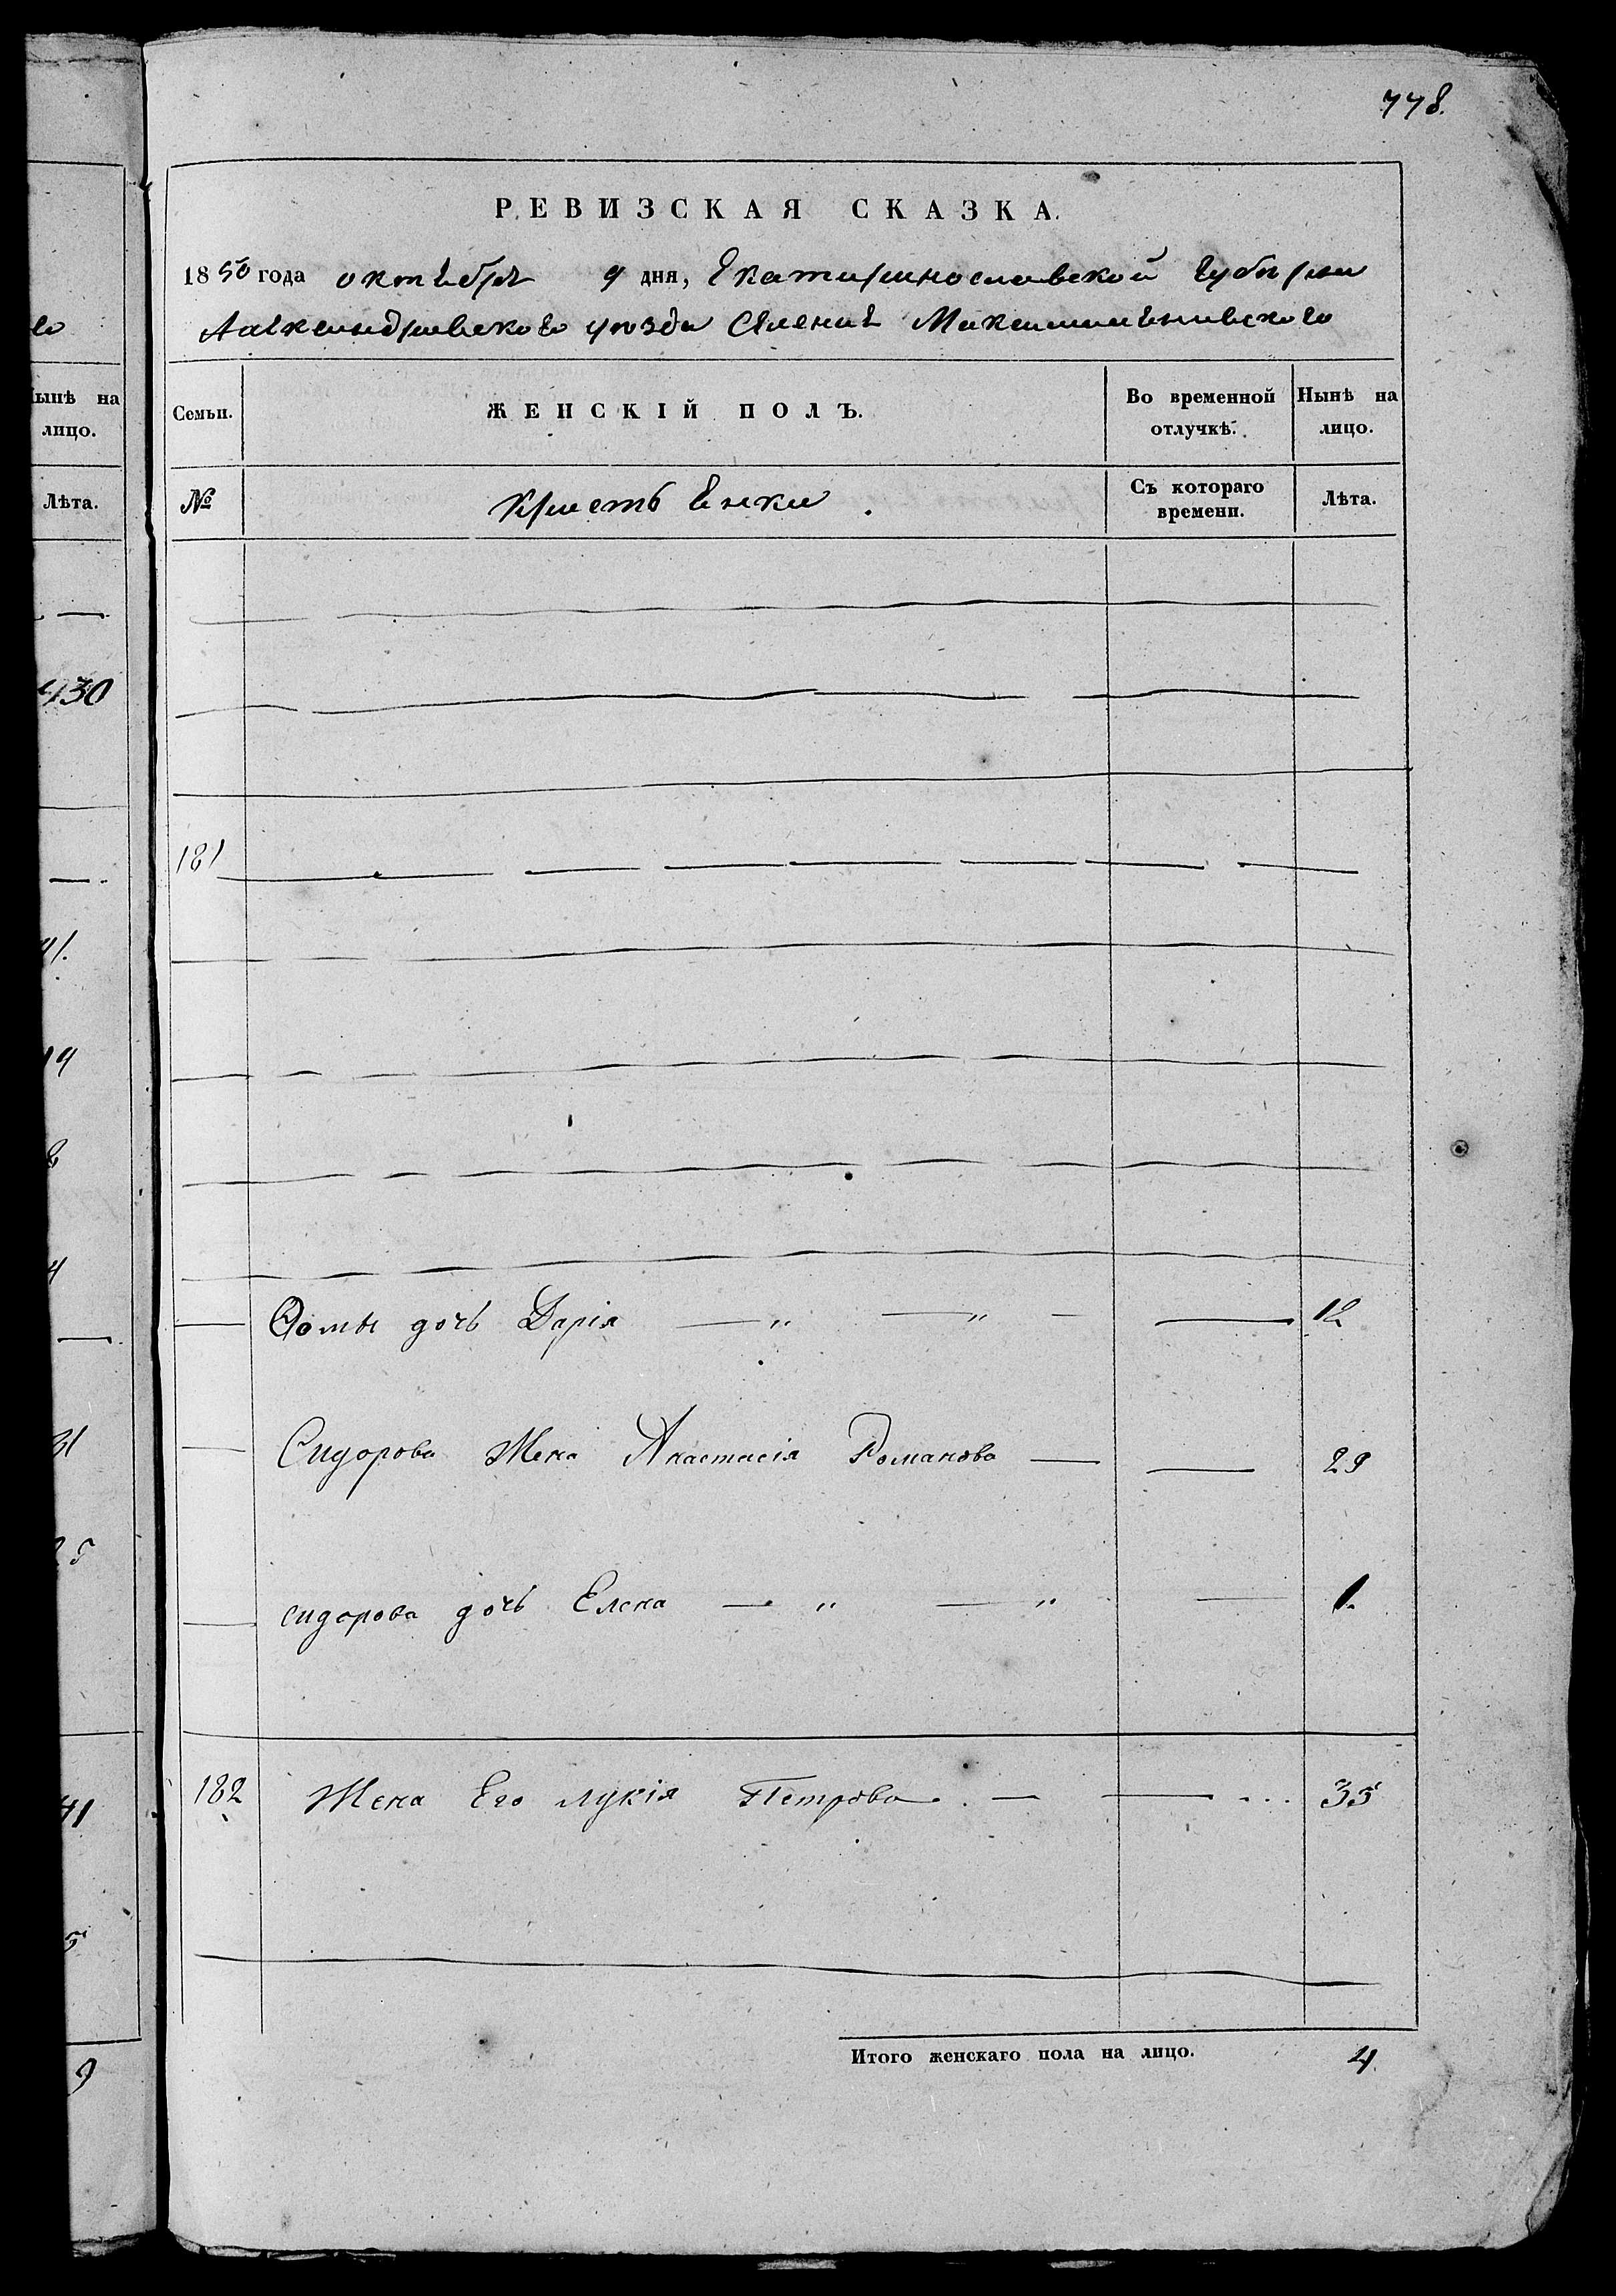 778.
РЕВИЗСКАЯ СКАЗКА.
1850 года октября 9 дня, Екатеринославской Губернии
Александровского уѣзда Селения Максимильяновского
Семьи. ЖЕНСКІЙ ПОЛЪ. Во временной отлучкѣ. Нынѣ на лицо.
№ Кристьянки. Съ котораго времени. Лѣта.
181
Ѳомы дочь Дарія — " — " — — 12
Сидорова Жена Анастасія Романова — — 29
сидорова дочь Елена — " — " — 1.
182 Жена Его лукія Петрова. — — ... 35
Итого женскаго пола на лицо. 4.
ынѣ на
лицо.
Лѣта.
430
41.
19
31
25
41
5
9